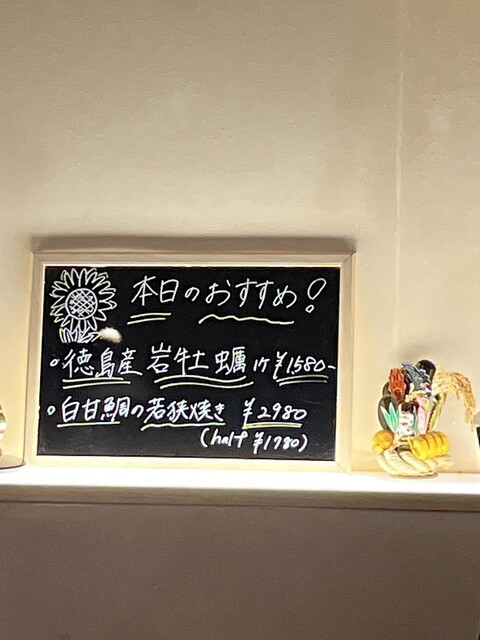 本日のおすすめ!
・徳島産 岩牡蠣 1ケ ¥1580-
・白甘鯛の若狭焼き ¥2980
(half ¥1780)